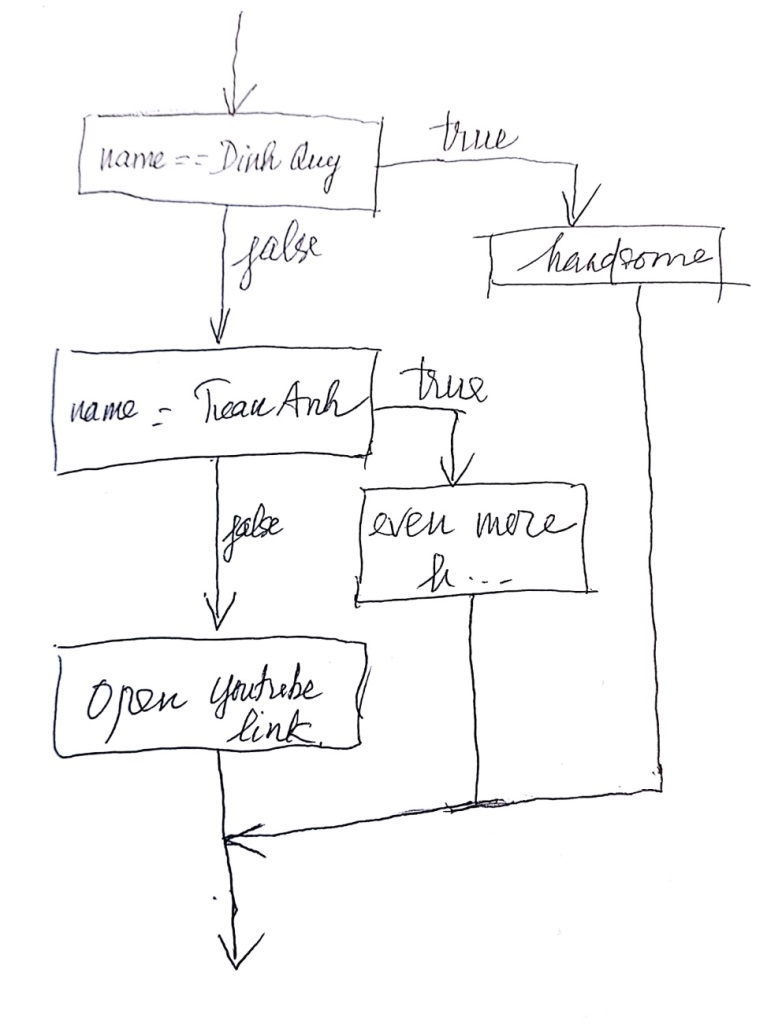 name == Dinh Quy
true
handsome
false
name = Tran Anh
true
even more
h...
false
Open youtube
link